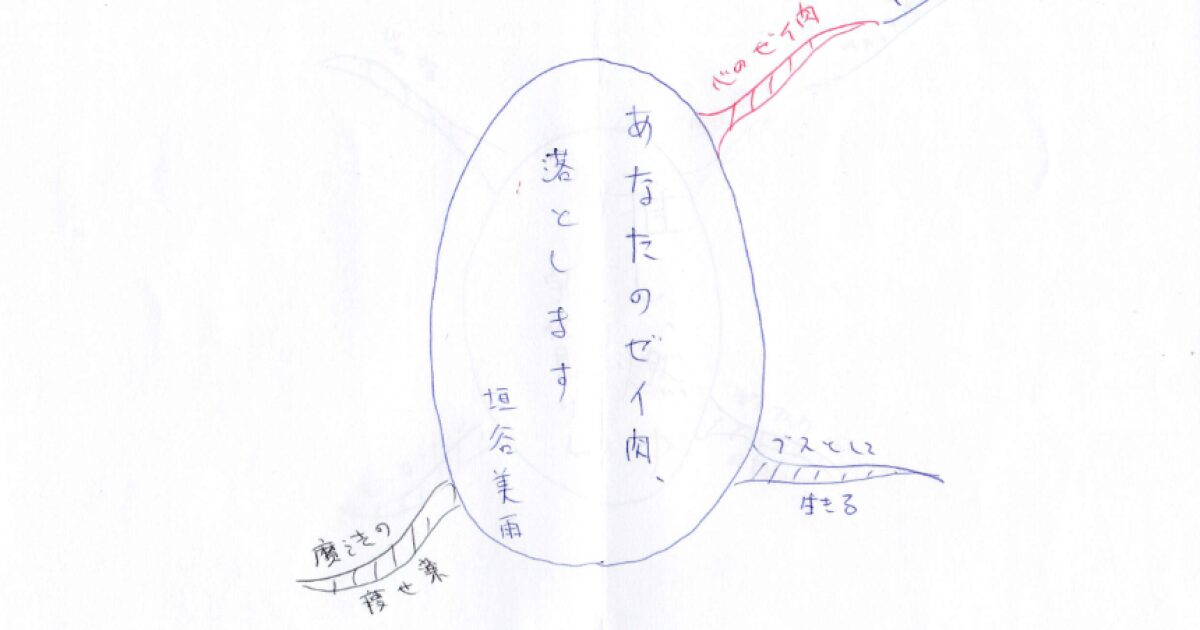 あなたのゼイ肉、
落とします
垣谷美雨
心のゼイ肉
ブスとして
生きる
魔法の
痩せ薬